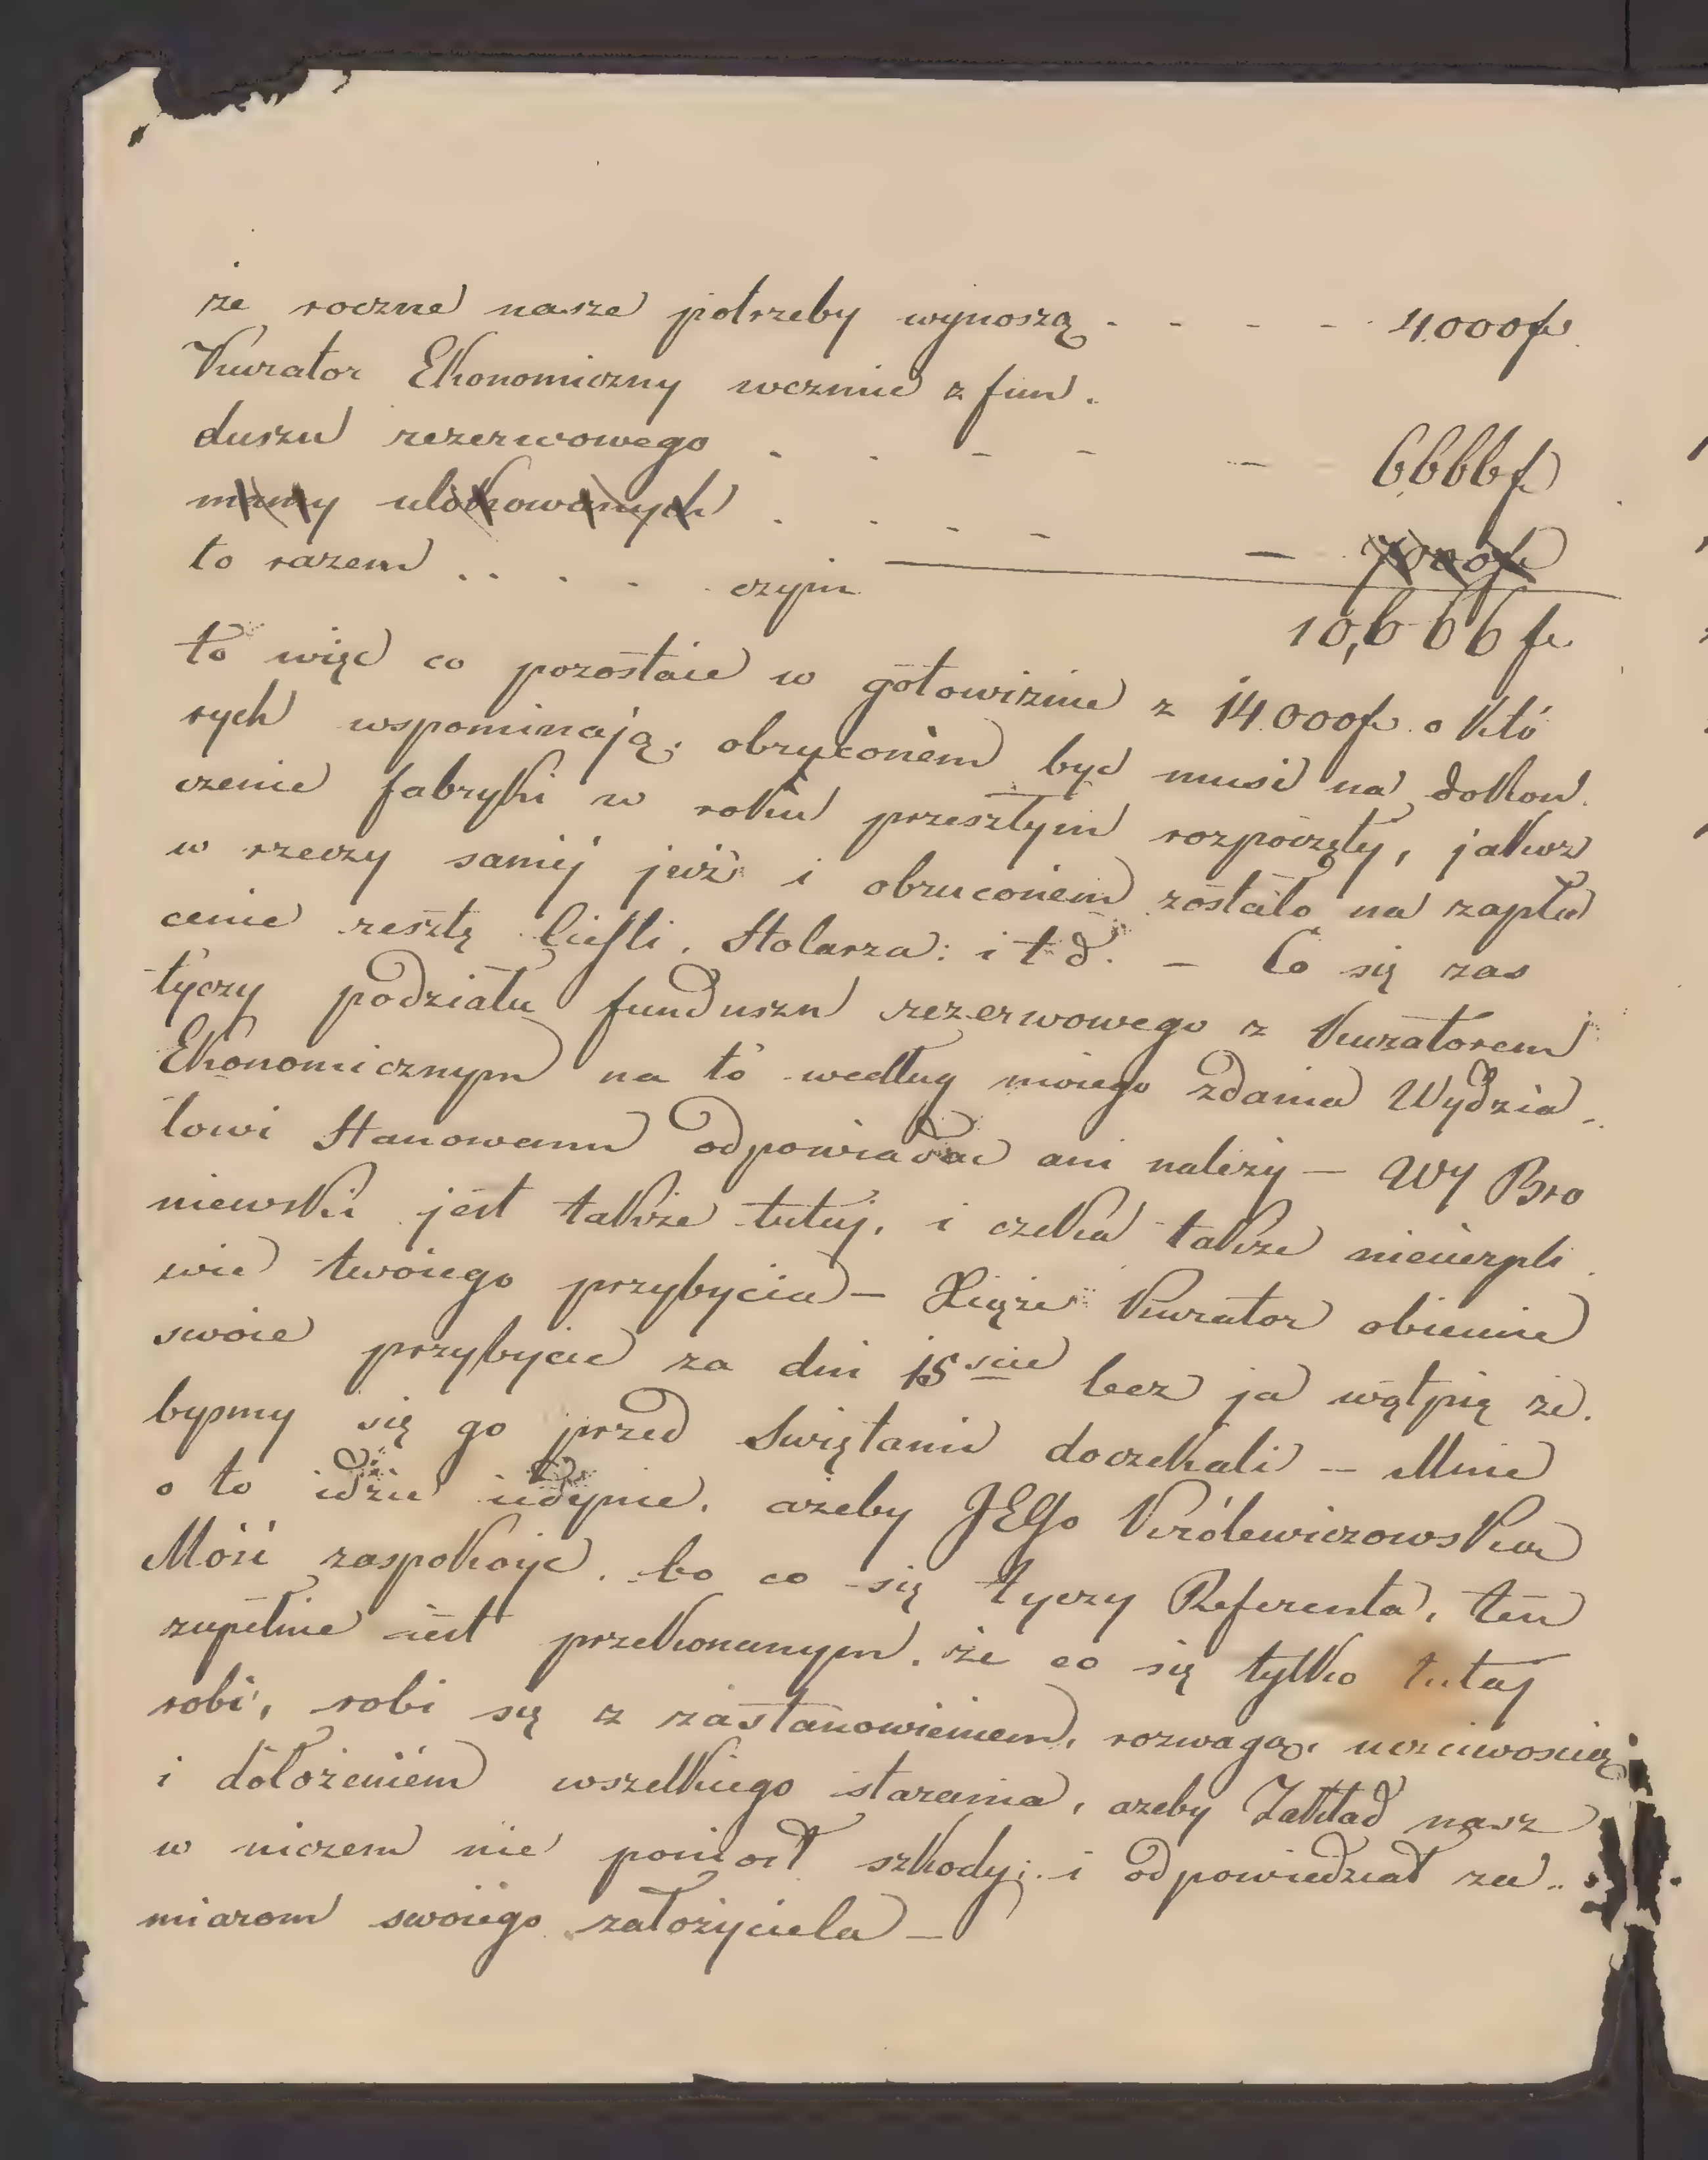 że roczne nasze potrzeby wynoszą - - - - 4.000fr.
Kurator Ekonomiczny weźmie z fun.
duszu rezerwowego - - - - 6.666f
mamy ulokowanych . . - - — 7000fr
to razem . . . - czyni
10,666 fr.
to więc co pozostaie w gotowiźnie z 14.000fr. o któ
rych wspominają, obruconem być musi na dokoń.
czenie fabryki w roku przeszłym rozpoczęty, jakoż
w rzeczy saméj już i obruconem zostało na zapła
cenie resztę Cieśli, Stolarza: i t d. — Co się zas
tyczy podziału funduszu rezerwowego z Kuratorem
Ekonomicznym na to według moiego zdania Wydzia..
łowi Stanowemu odpowiadać ani należy — Wy Bro
niewski jest także tutaj, i czeka także niecierpli.
wie twoiego przybycia — Xiąże Kurator obiecuie
swoie przybycie za dni 15ście lecz ja wątpię że.
byśmy się go przed Świętami doczekali — Mnie
o to idzie iedynie, ażeby JEGo Królewiczowską
Mość zaspokoić, bo co się tyczy Referenta, ten
zupełnie iest przekonanym, że co się tylko tutaj
robi, robi się z zastanowieniem, rozwagą, uczciwością,
i dołożeniem wszelkiego starania, ażeby Zakład nasz
w niczem nie poniosł szkody; i odpowiedział za..
miarom swoiego założyciela —